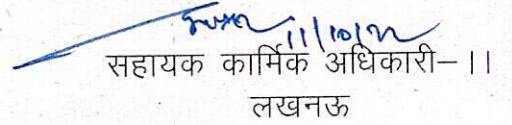 11/10/22
सहायक कार्मिक अधिकारी–।।
लखनऊ